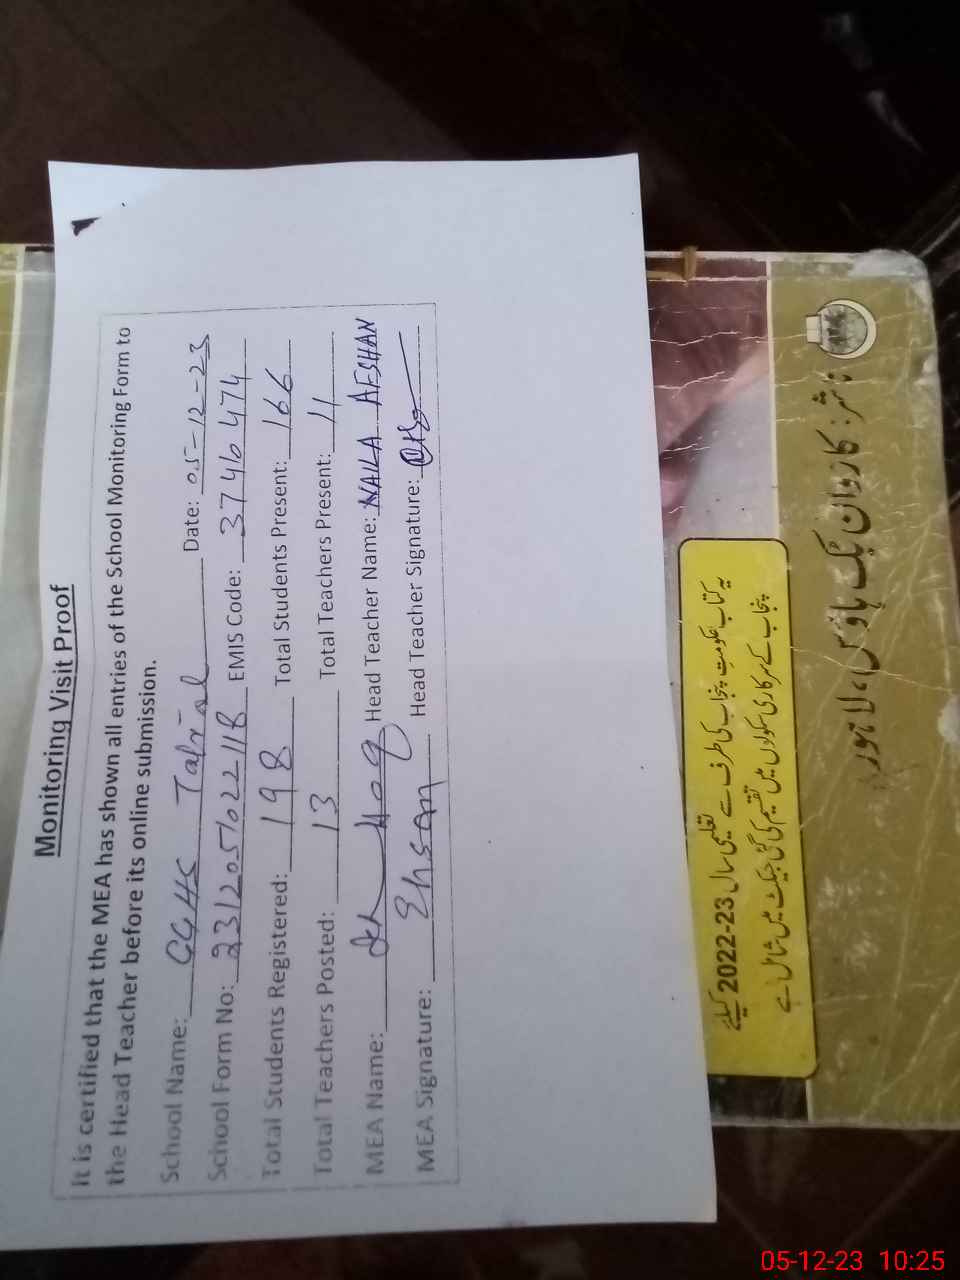 Monitoring Visit Proof
It is certified that the MEA has shown all entries of the School Monitoring Form to
the Head Teacher before its online submission.
School Name: GGHS Date: 05-12-23
School Form No: 231205/022118 EMIS Code: 37460474
Total Students Registered: 198 Total Students Present: 166
Total Teachers Posted: 13 Total Teachers Present: 11
MEA Name: Head Teacher Name: NAILA AFSHAN
MEA Signature: Ehsan Head Teacher Signature:
یہ کتاب حکومتِ پنجاب کی طرف سے تعلیمی سال 2022-23 کیلئے
پنجاب کے سرکاری سکولوں میں تقسیم کی گئی جیکٹ میں شامل ہے
ناشر: کاروان بک ہاؤس، لاہور
05-12-23 10:25